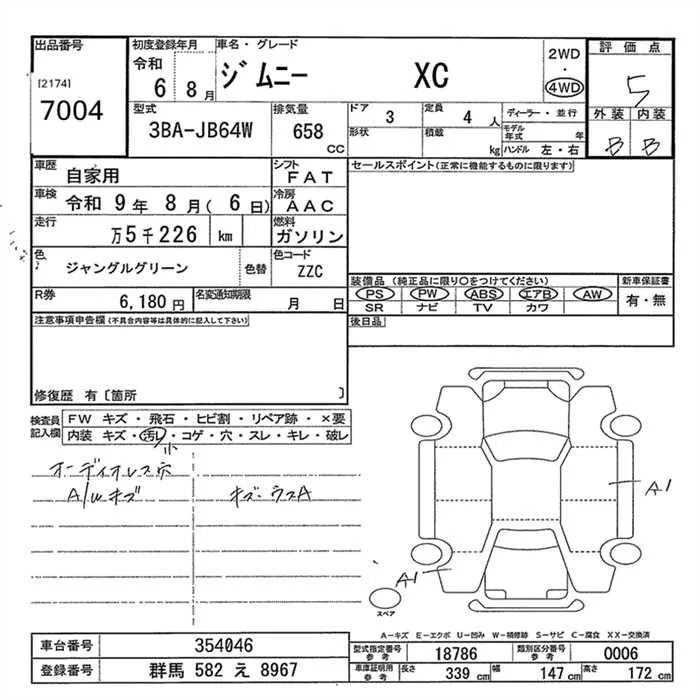 出品番号 初度登録年月 車名・グレード 評価点
[2174] 7004
令和 6 8月 ジムニー XC 2WD・4WD 5
型式 3BA-JB64W 排気量 658 CC
ドア 3 定員 4人 ディーラー・並行 外装 内装
形状 積載 kg モデル年式 年 ハンドル 左・右 B B
車歴 自家用 シフト FAT セールスポイント(正常に機能するものに限ります)
車検 令和 9年 8月( 6日) 冷房 AAC
走行 万5千226 km 燃料 ガソリン
色 ジャングルグリーン 色替 色コード ZZC
装備品 (純正品に限り○をつけてください) 新車保証書
R券 6,180円 名変通知期限 月 日 PS PW ABS エアB AW 有・無
SR ナビ TV カワ
注意事項申告欄(不具合内容等は具体的に記入して下さい) 後日品
修復歴 有〔箇所 〕
検査員記入欄 FW キズ・飛石・ヒビ割・リペア跡・×要
内装 キズ・汚れ・コゲ・穴・スレ・キレ・破レ
小
オーディオレス穴
A/wキズ キズ・ウスA
A1
A1
スペア
A-キズ E-エクボ U-凹み W-補修跡 S-サビ C-腐食 XX-交換済
車台番号 354046 型式指定番号 参考 18786 類別区分番号 参考 0006
登録番号 群馬 582 え 8967 車庫証明用 参考 長さ 339 cm 幅 147 cm 高さ 172 cm